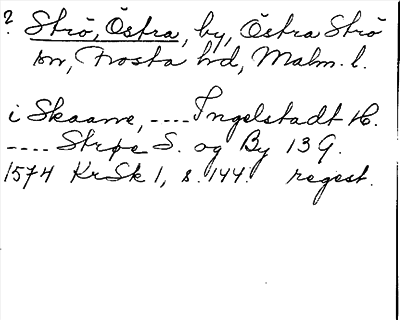 ? Strö, Östra, by, Östra Strö
sn, Frosta hd, Malm. l.
i Skaane, .... Ingelstadt H.
.... Strøe S. og By 13 G.
1574 KrSk 1, s. 144. regest.